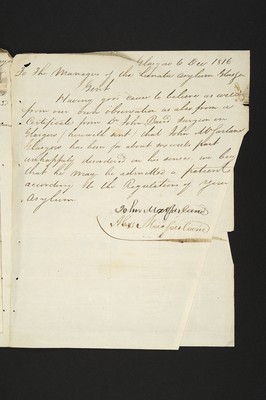 Glasgow 6 Dec 1816
To The Manager of the Lunatic Asylum Glasgow
Gent
Having good cause to believe as well
from our own observation as also from a
Certificate from Dr John Surgeon in
Glasgow (herewith sent) that John McFarlane
Glasgow has been for about my weeks past
unhappily disordered in his senses, we beg
that he may be admitted a patient
according to the Regulations of your
Asylum
John Macfarlane
Macfarlane